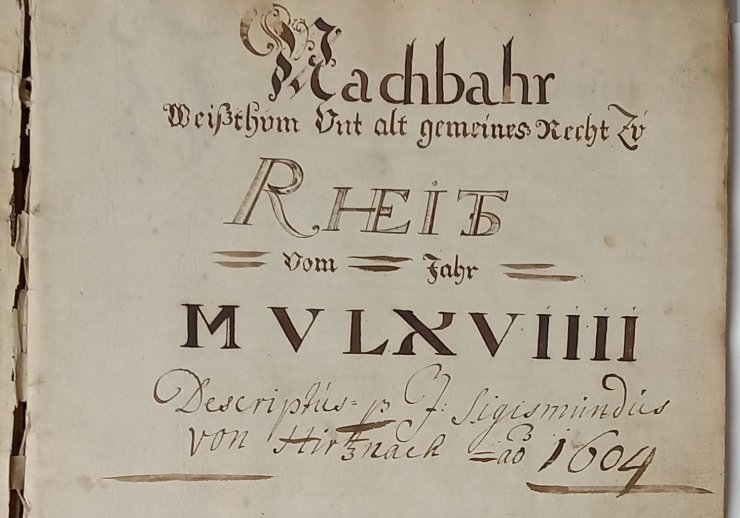 Nachbahr
Weißthum Vnt alt gemeines Recht Zu
RHEITS
Vom Jahr
M V L X V I I I I I
Descriptus p J: Sigismundus
von Hirtznach ao 1604